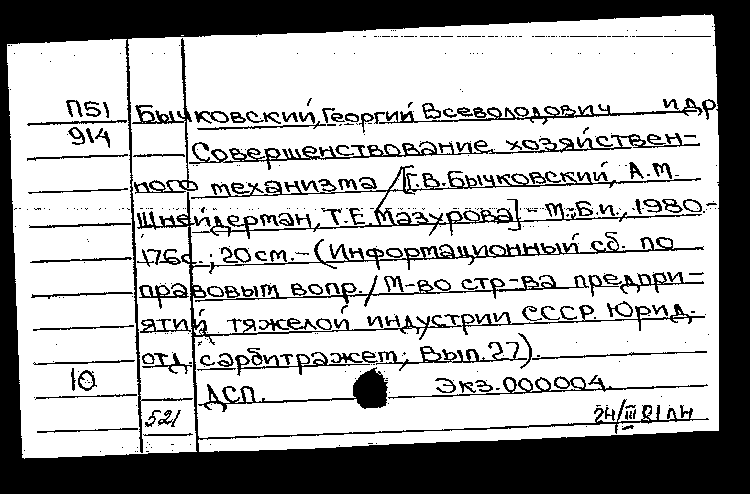 П51 Бычковский, Георгий Всеволодович и др
914 Совершенствование хозяйствен-
ного механизма / [Г.В. Бычковский, А.М.
Шнейдерман, Т.Е. Мазурова] - М.: Б.и., 1980.-
176с.; 20 см. - (Информационный сб. по
правовым вопр. / М-во стр-ва предпри-
ятий тяжелой индустрии СССР. Юрид.
отд. с арбитражем; Вып. 27).
10 ДСП. Экз. 000004.
521 24/III 81 лн